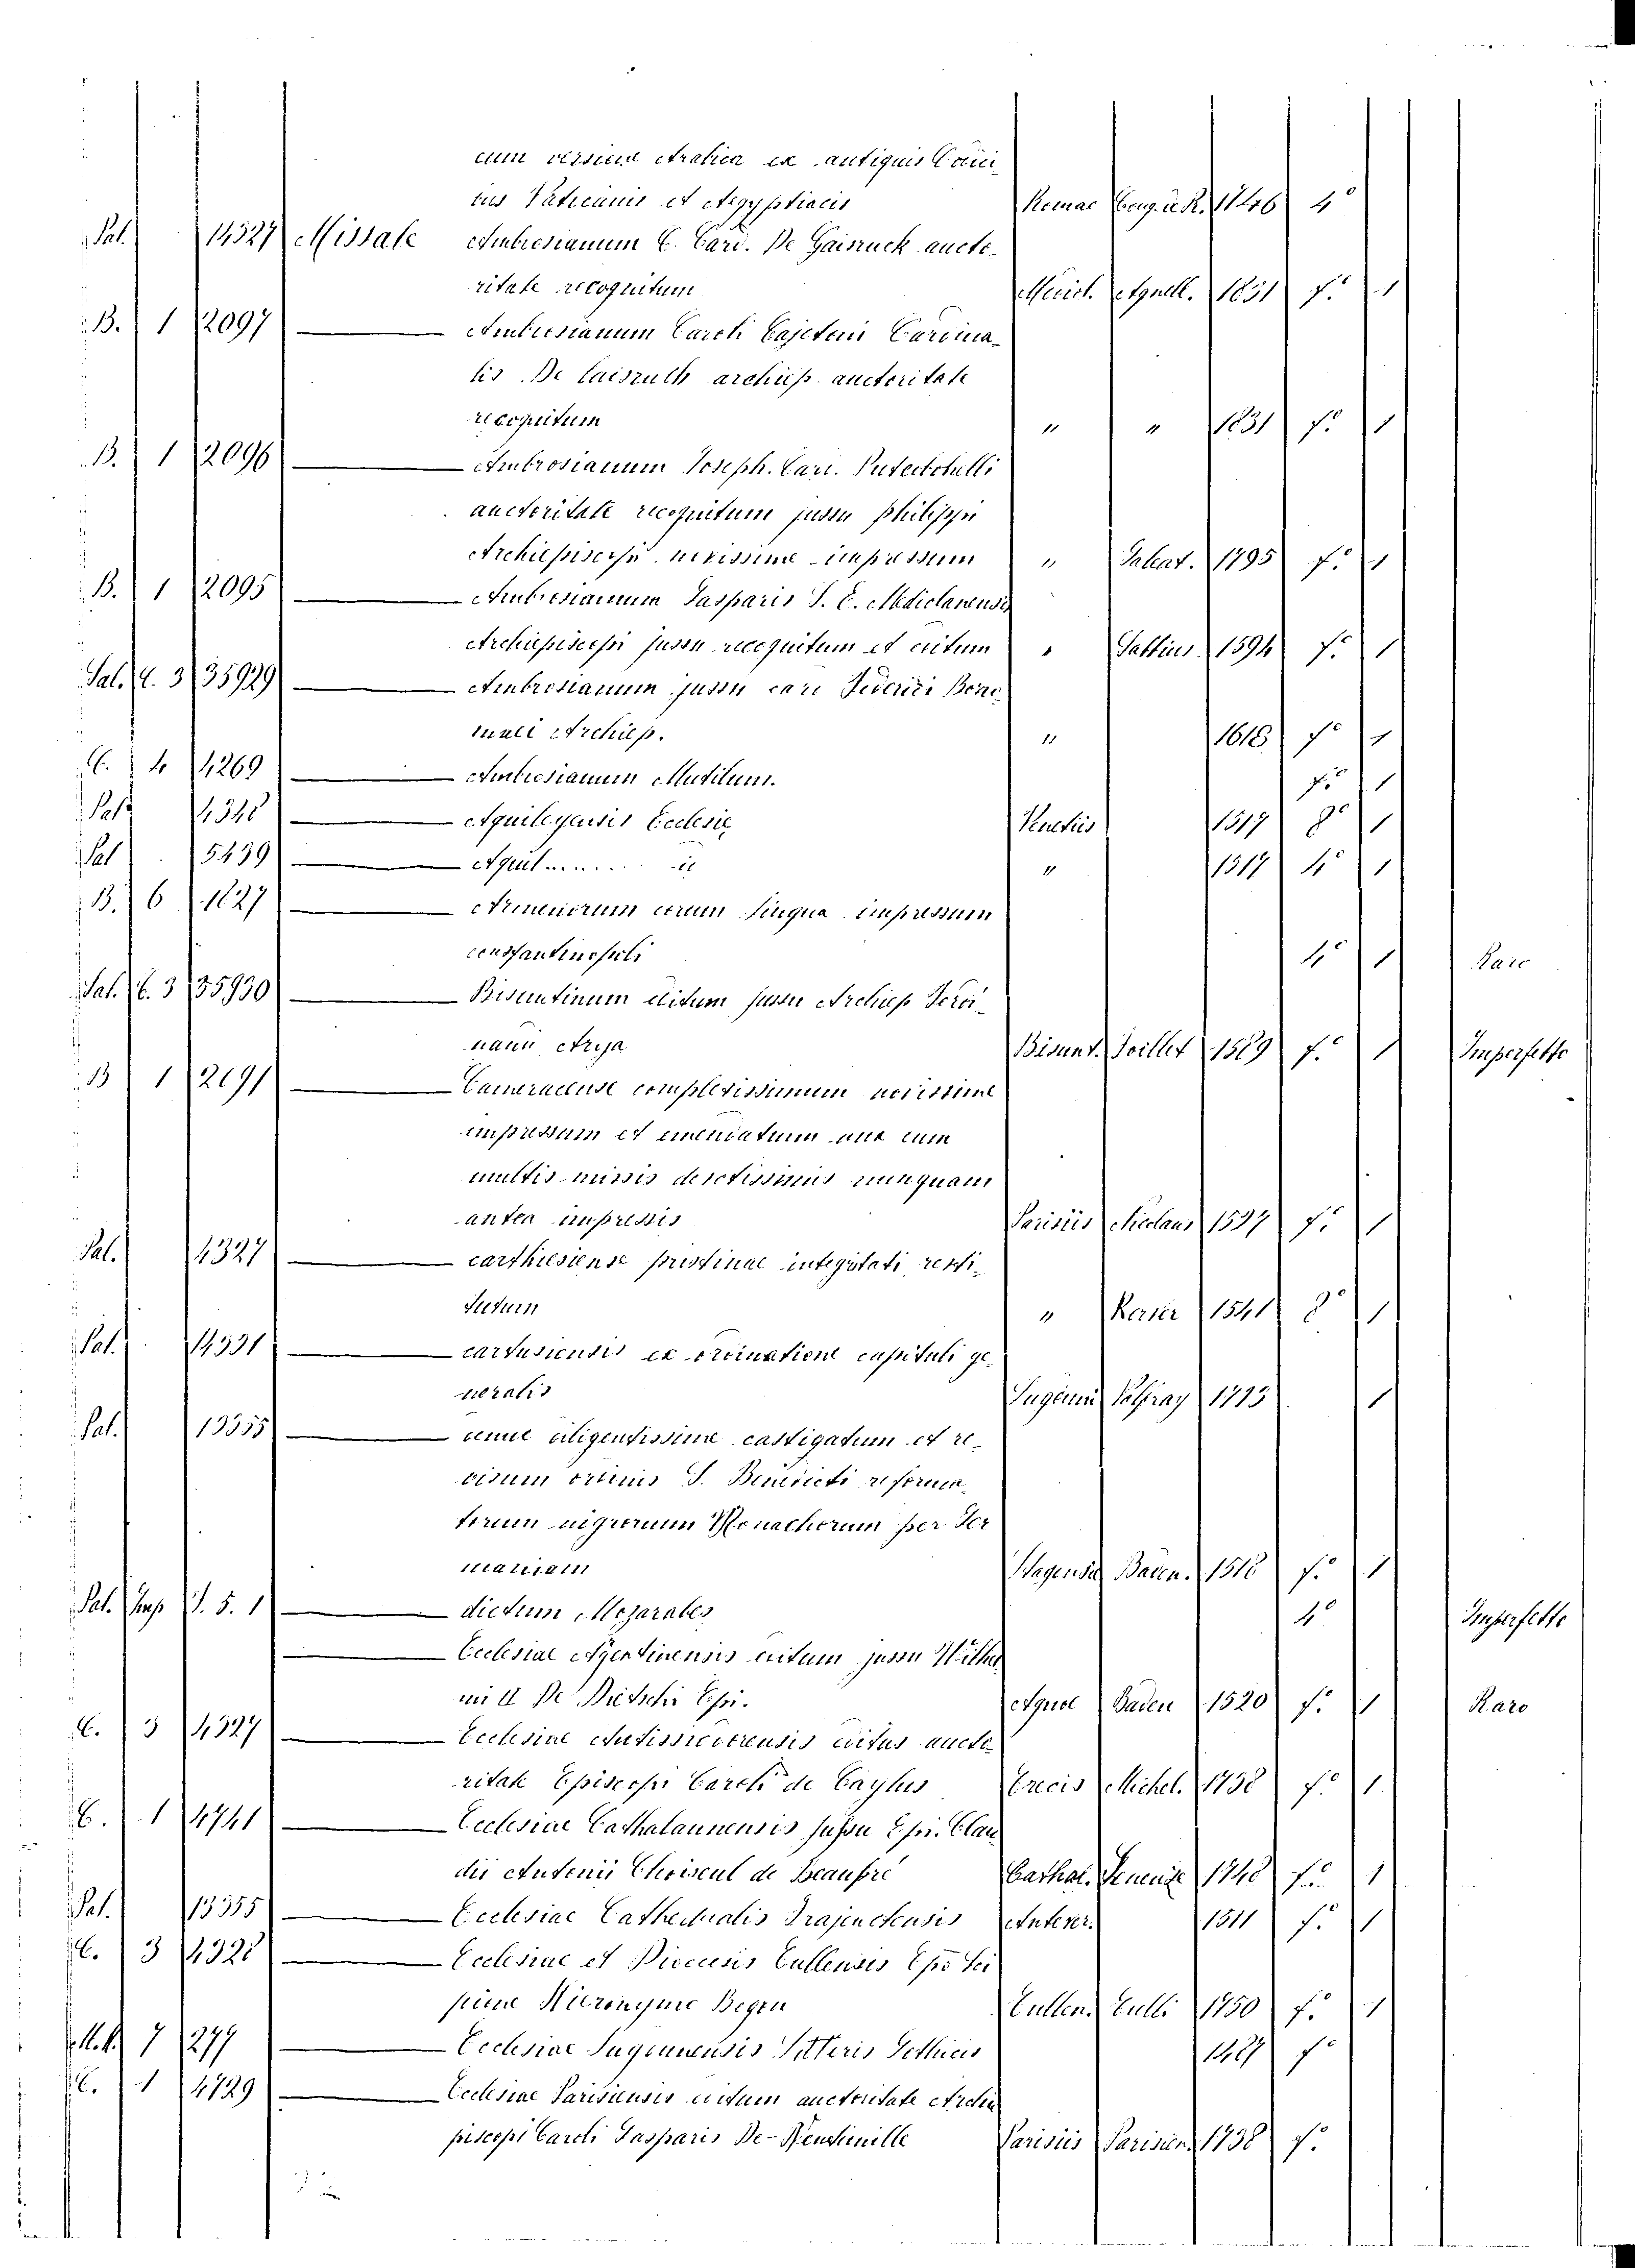 cum versione Arabica ex antiquis Codici
bus Vaticanis et Aegyptiacis Romae Cong. 4°
Sal. 14527 Missale Ambrosianum C. Card. De Gaisruck aucto-
ritate recognitum Agnell. 1831 f.° 1
B. 1 2097 Ambrosianum Caroli Cajetani Cardina-
lis De Gaisruch archiep. auctoritate
recognitum " " 1831 f.° 1
B. 1 2096 Ambrosianum Joseph. Card. Puteobonelli
auctoritate recognitum jussu Philippi
Archiepiscopi novissime impressum " Galeat. 1795 f.° 1
B. 1 2095 Ambrosianum Gasparis S. E. Mediolanensis
Archiepiscopi jussu recognitum et editum " 1594 f.° 1
Sal. C. 3 35929 Ambrosianum jussu card Federici Borro
maei Archiep. " 1618 f.° 1
C. 4 4269 Ambrosianum Mutilum. f.° 1
Aquilegensis Ecclesie Venetiis 1517 8° 1
Sal 5439 Aquil........ " 1517 4° 1
B. 6 1827 Armenorum eorum lingua impressum
constantinopoli 4° 1 Raro
Sal. C. 3 35930 Bisuntinum editum jussu Archiep Ferdi-
nandi Bisunt. 1589 f.° 1 Imperfetto
B 1 2091 Cameracense completissimum novissime
impressum et emendatum una cum
multis missis devotissimis nunquam
antea impressis Parisiis 1527 f.° 1
Sal. 4327 carthusiense pristinae integritati resti-
tutum " Kerver 1541 8° 1
Sal. 14331 cartusiensis ex ordinatione capituli ge-
neralis Lugduni Valfray 1713 1
Sal. 13355 denuo diligentissime castigatum et re-
visum ordinis S. Benedicti reforma-
torum nigrorum Monachorum per Ger
maniam Hagenoe 1518 f.° 1
Sal. Imp V. 5. 1 dictum Mozarabes 4° Imperfetto
Ecclesiae Argentinensis editum jussu Wilhel
mi II De Dietschi Epi. Baden 1520 f.° 1 Raro
C. 3 4327 Ecclesiae Autissiodorensis editus aucto
ritate Episcopi Caroli de Caylus Trecis Michel. 1738 f.° 1
C. 1 4741 Ecclesiae Cathalaunensis jussu Epi. Clau
dii Antonii Choiseul de Beaupré Cathal. Seneuze 1748 f.° 1
Sal. 13355 Ecclesiae Cathedralis Trajectensis Antver. 1511 f.° 1
C. 3 4328 Ecclesiae et Diocesis Tullensis Epo Sci
pione Hieronymo Begon Tullen. Tulli 1750 f.° 1
7 279 Ecclesiae Lugdunensis Litteris Gothicis 1487 f°
C. 1 4729 Ecclesiae Parisiensis editum auctoritate Archie
piscopi Caroli Gasparis De-Ventimille Parisiis Parisien. 1738 f.°